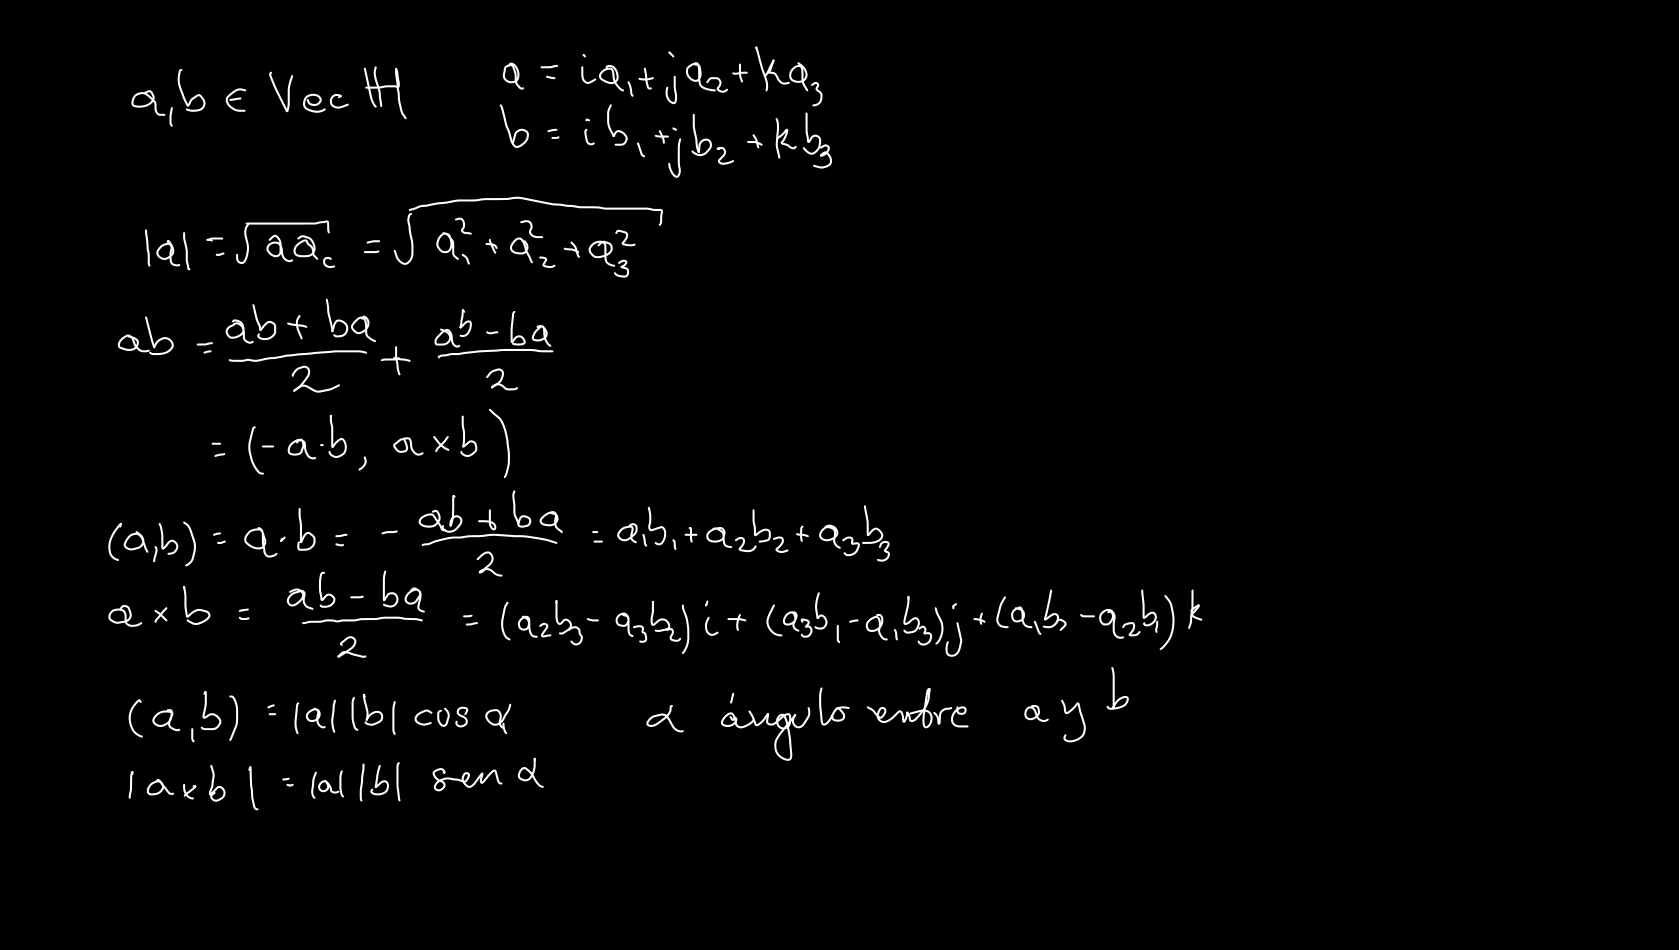 a, b ∈ Vec ℍ
a = ia₁ + ja₂ + ka₃
b = ib₁ + jb₂ + kb₃
|a| = √(aa_c) = √(a₁² + a₂² + a₃²)
ab = (ab + ba)/2 + (ab - ba)/2
= (-a·b, a × b)
(a,b) = a·b = - (ab + ba)/2 = a₁b₁ + a₂b₂ + a₃b₃
a × b = (ab - ba)/2 = (a₂b₃ - a₃b₂)i + (a₃b₁ - a₁b₃)j + (a₁b₂ - a₂b₁)k
(a,b) = |a||b| cos α    α ángulo entre a y b
|a×b| = |a||b| sen α